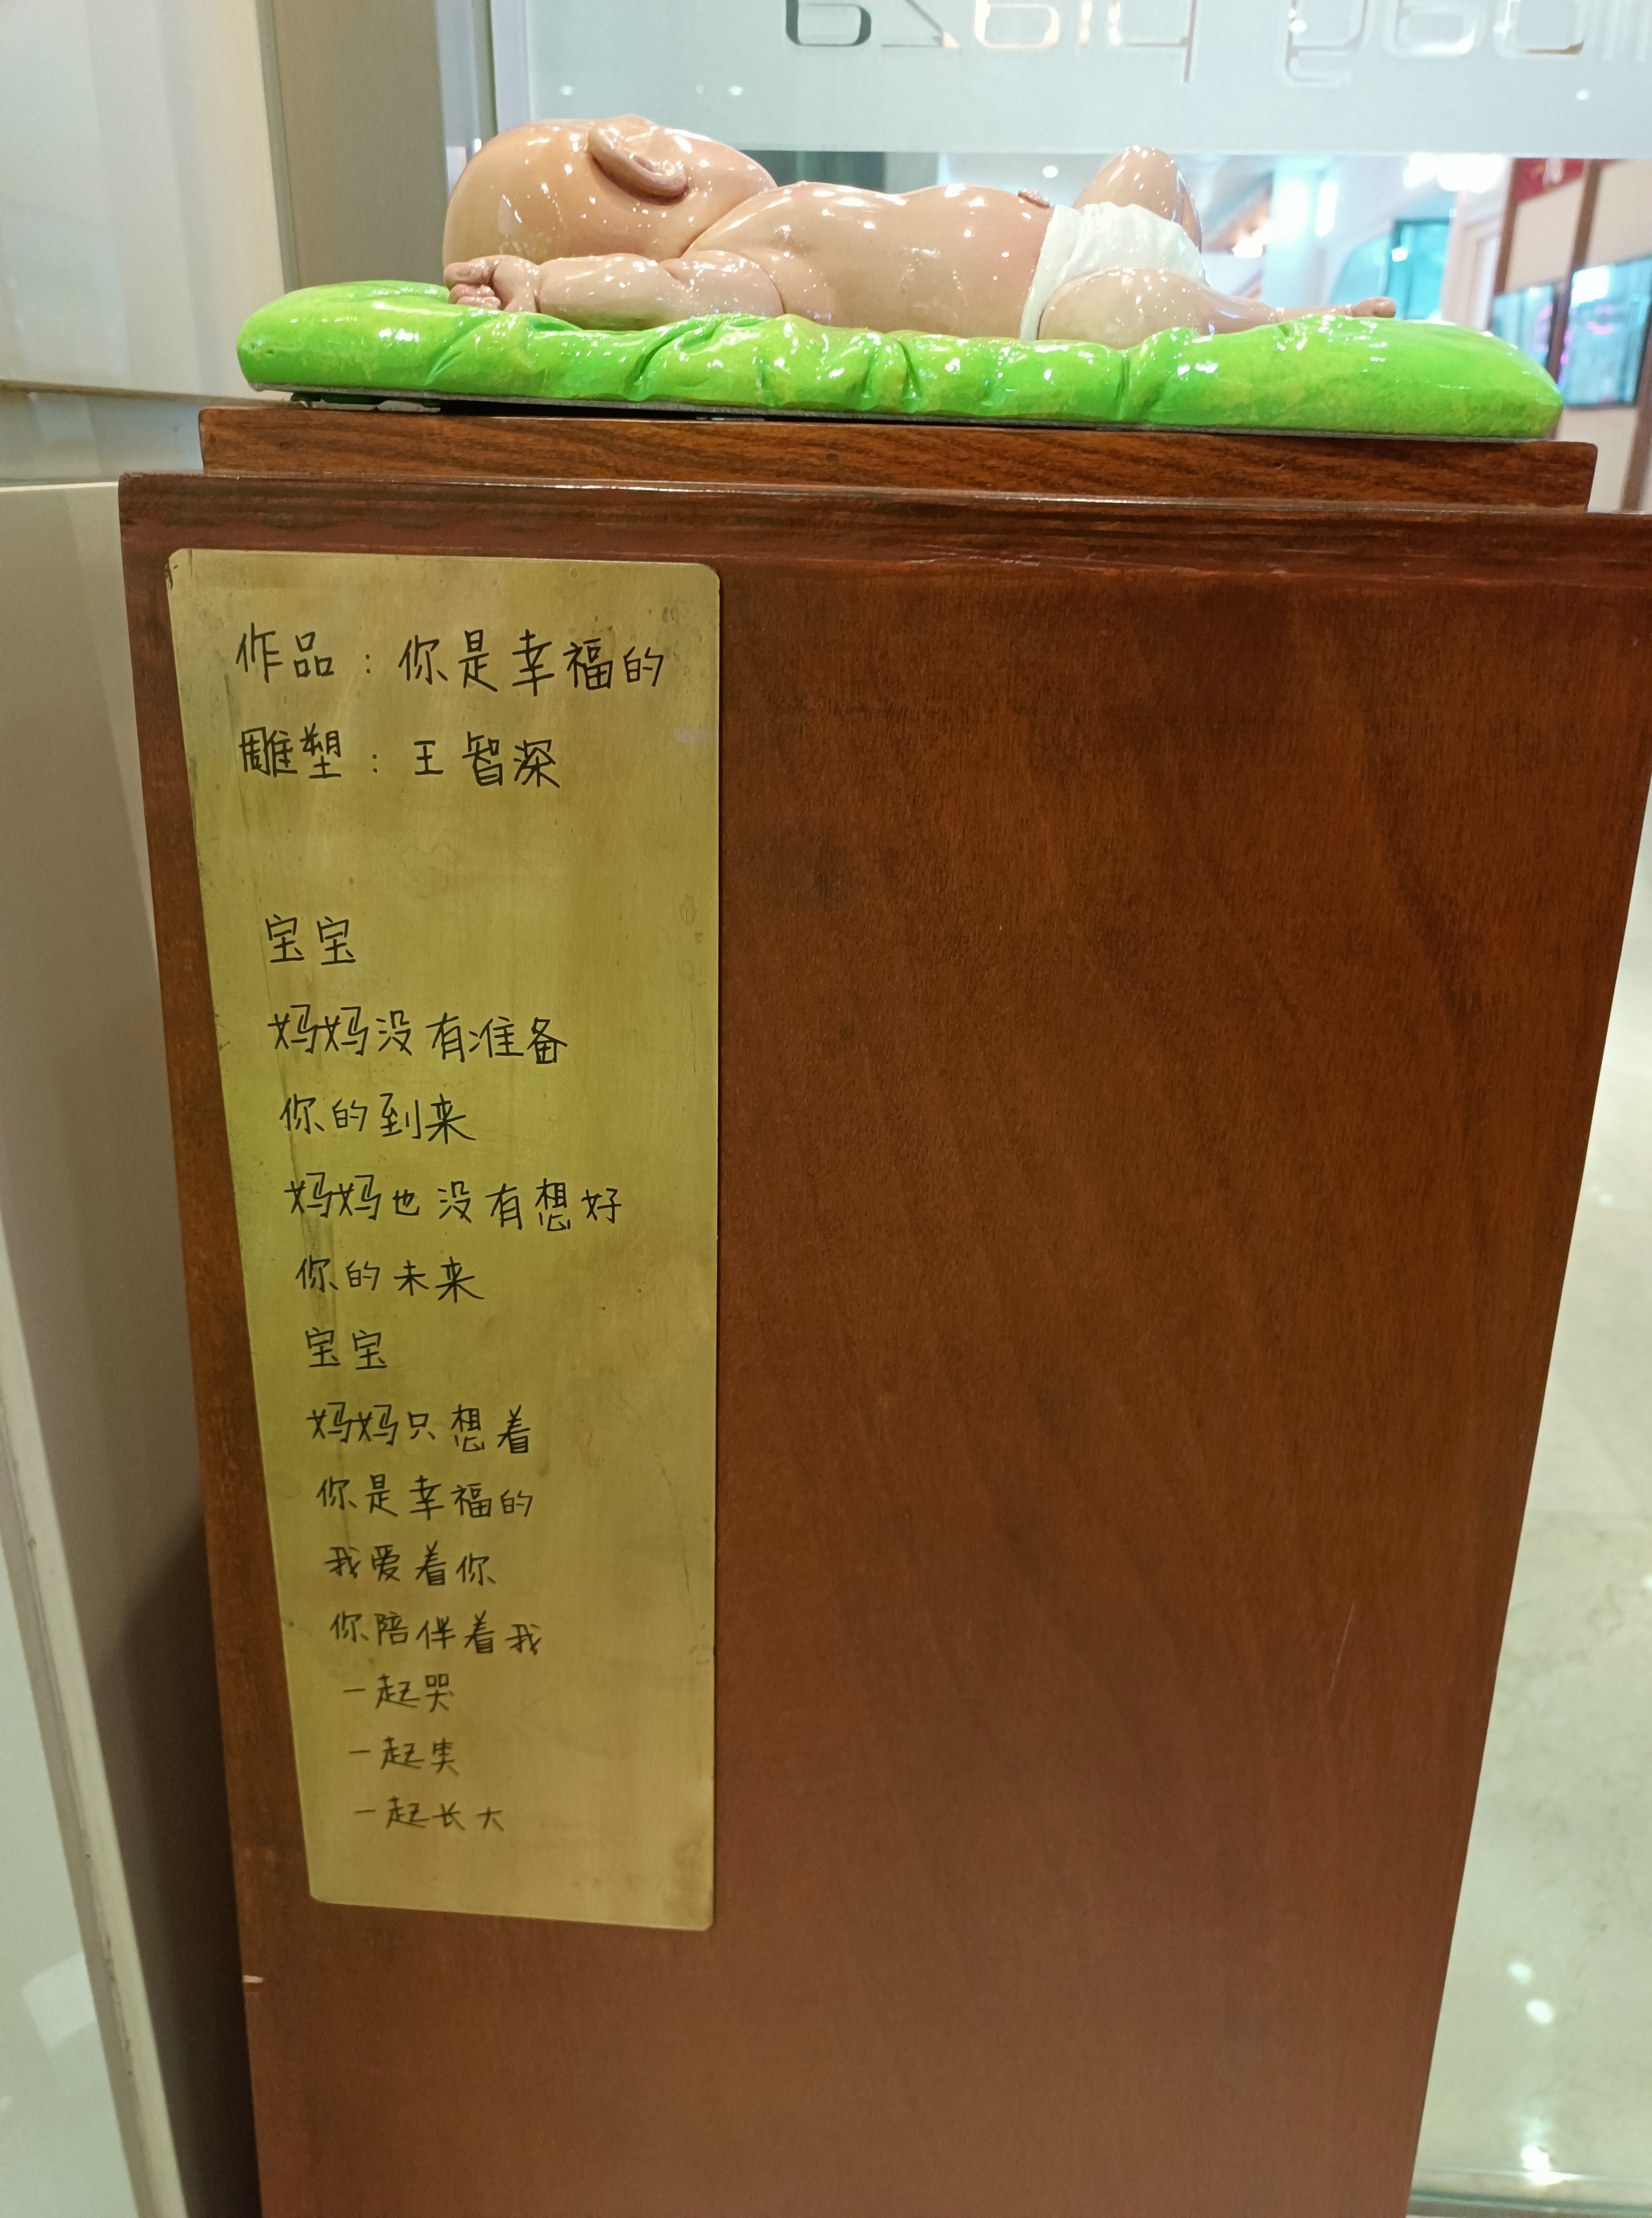 plaza
作品：你是幸福的
雕塑：王智深
宝宝
妈妈没有准备
你的到来
妈妈也没有想好
你的未来
宝宝
妈妈只想着
你是幸福的
我爱着你
你陪伴着我
一起哭
一起笑
一起长大